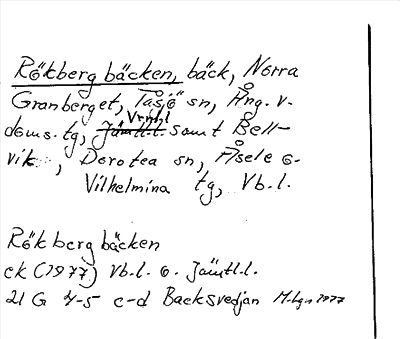 Rökberg bäcken, bäck, Norra
Granberget, Tåsjö sn, Ång. v.
doms. tg, Jämtl.l. Vrnhl samt Bell-
vik, Dorotea sn, Åsele o.
Vilhelmina tg, Vb.l.
Rökbergbäcken
ek (1977) Vb.l. o. Jämtl.l.
21 G 4-5 c-d Backsvedjan M.lgn 1977